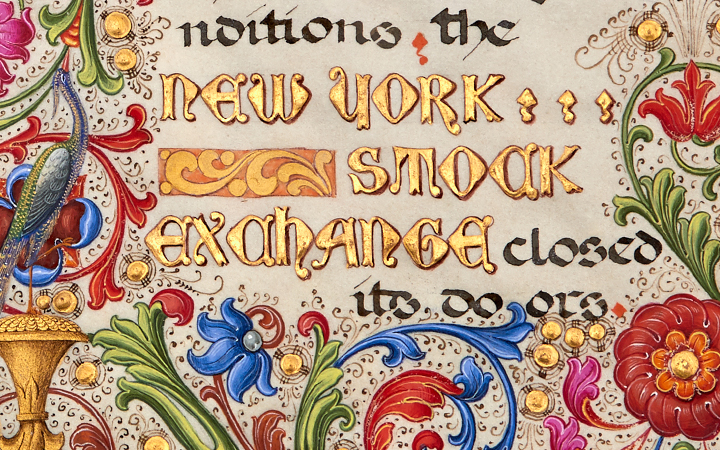 nditions, the
NEW YORK . . .
STOCK
EXCHANGE closed
its do ors.